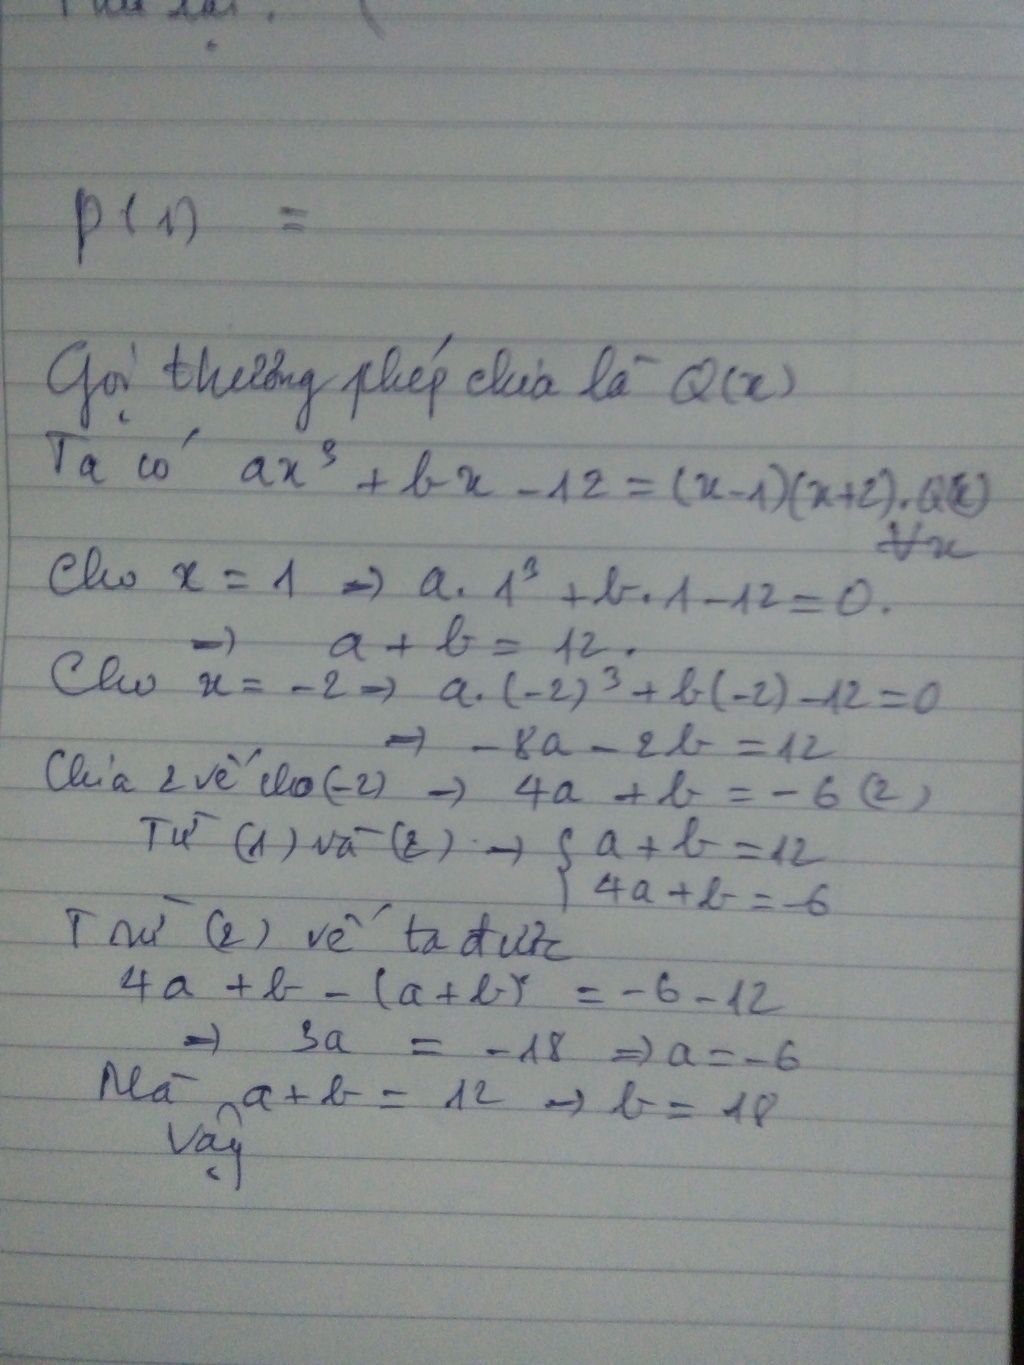 P(1) =
Gọi thương phép chia là Q(x)
Ta có ax³ + bx - 12 = (x-1)(x+2). Q(x)
∀x
Cho x = 1 => a. 1³ + b. 1 - 12 = 0.
=> a + b = 12.
Cho x = -2 => a. (-2)³ + b(-2) - 12 = 0
=> -8a - 2b = 12
Chia 2 vế cho (-2) => 4a + b = -6 (2)
Từ (1) và (2) => { a + b = 12
4a + b = -6
Trừ (2) vế ta được
4a + b - (a + b) = -6 - 12
=> 3a = -18 => a = -6
Mà a + b = 12 => b = 18
Vậy